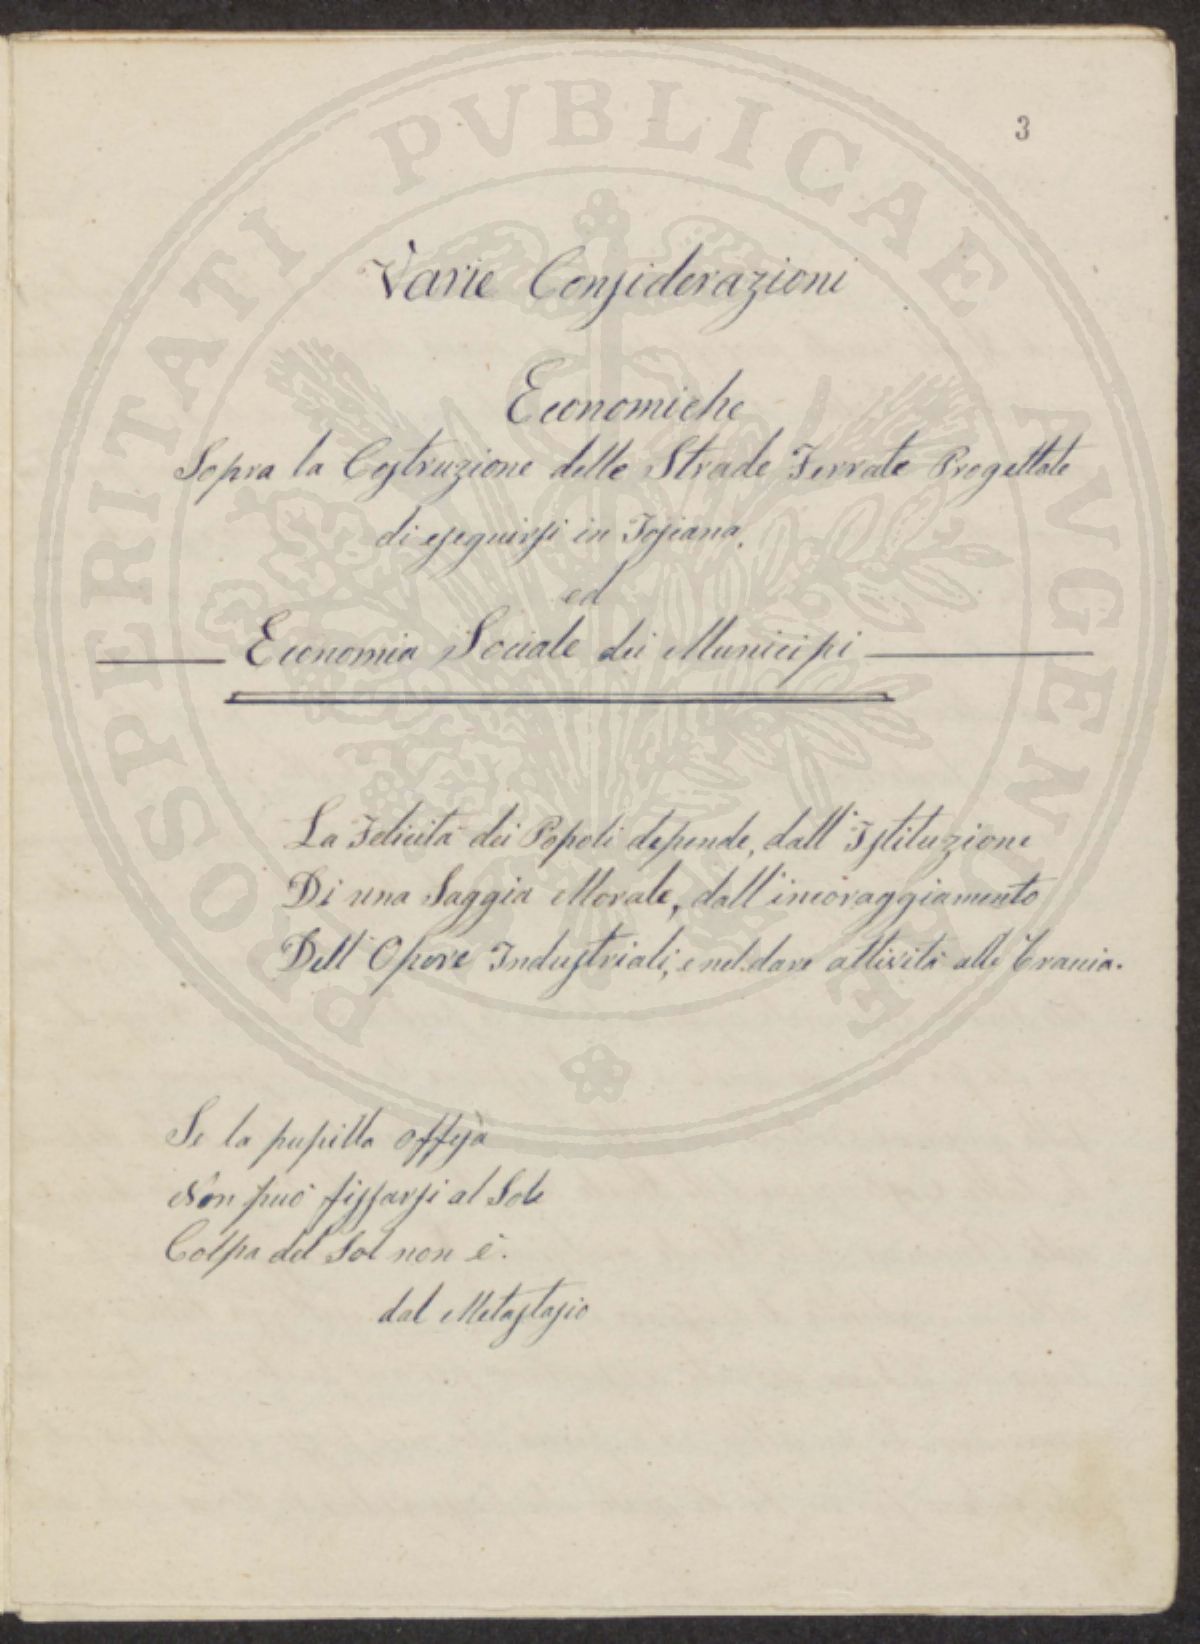 3
Varie Considerazioni
Economiche
Sopra la Costruzione delle Strade Ferrate Progettate
di eseguirsi in Tosiana,
ed
Economia Sociale dei Municipi
La Felicità dei Popoli depende, dall'Istituzione
Di una Saggia Morale, dall'incoraggiamento
Dell'Opere Industriali, e nel dare attività alle
Se la pupilla offesa
Non può fissarsi al Sole
Colpa del Sol non è.
dal Metastasio
PROSPERITATI PVBLICAE AVGENDAE